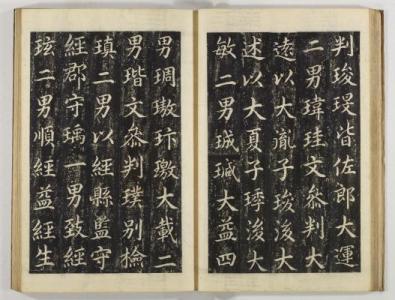 判皆佐郎大運
二男瑋珪文叅判大
遠以大胤子後大
述以大夏子琈後大
敏二男珹瑊大益四
男琱璈玠璬大載二
男瑎文叅判璞別檢
瑱二男以經縣監守
經郡守瑀一男致經
玹二男順經益經生